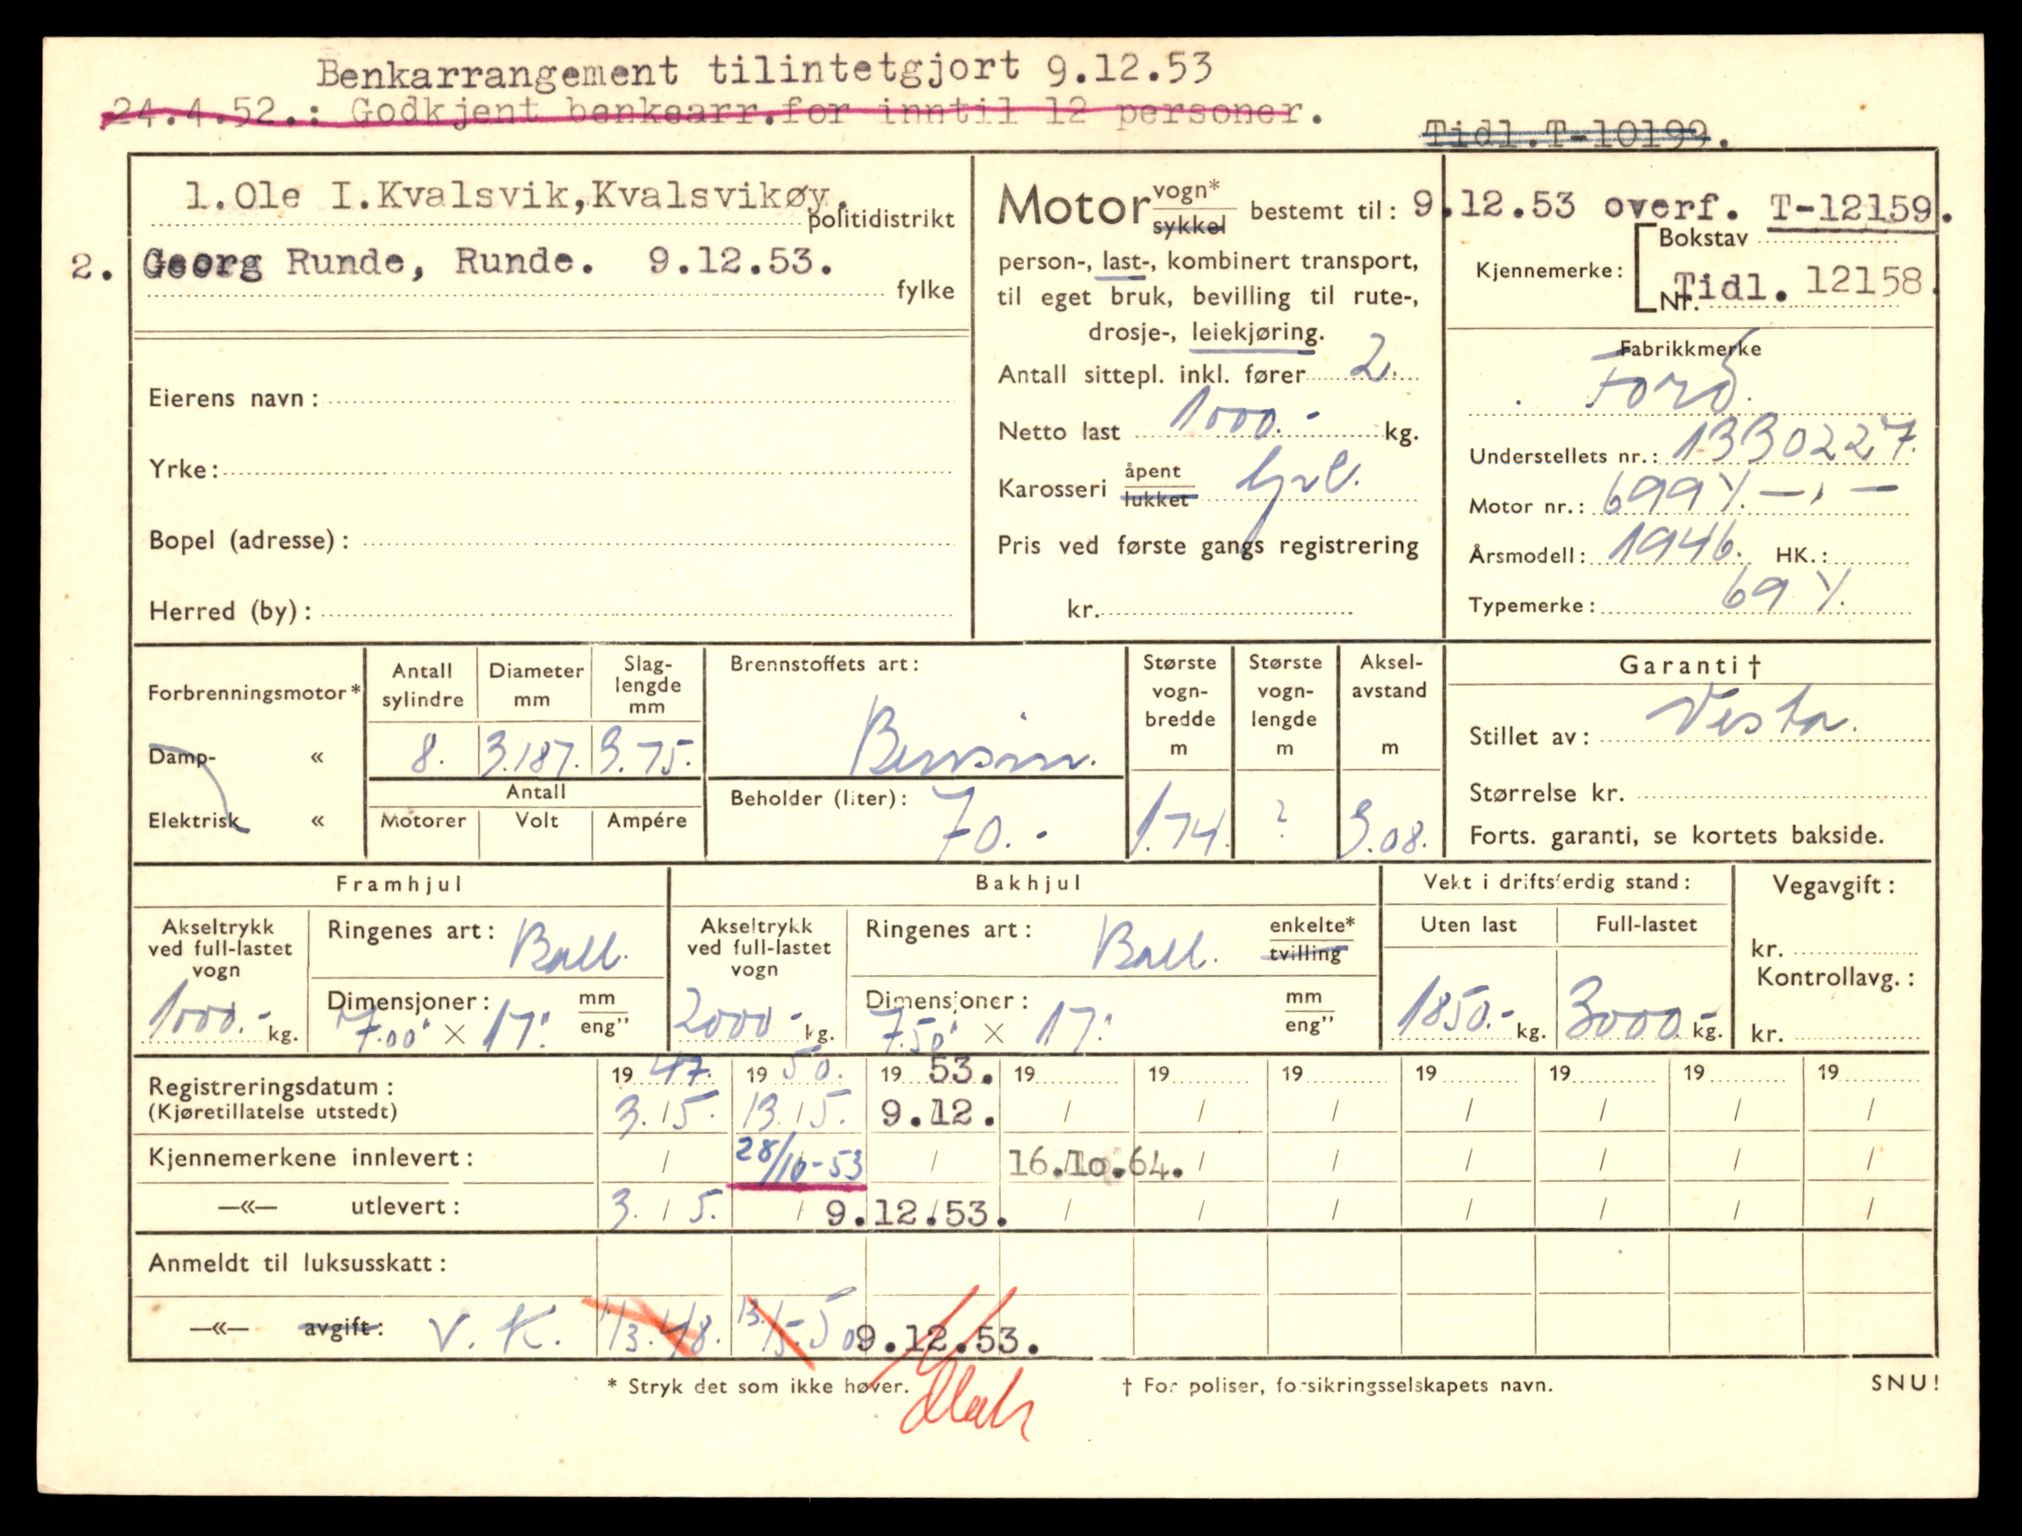 Benkarrangement tilintetgjort 9.12.53
24.4.52.: Godkjent benkearr.for inntil 12 personer.
Tidl.T-10199.
1.Ole I.Kvalsvik,Kvalsvikøy.
politidistrikt
2. Georg Runde, Runde. 9.12.53.
fylke
Eierens navn:
Yrke:
Bopel (adresse):
Herred (by):
Motor vogn* sykkel bestemt til:
person-, last-, kombinert transport,
til eget bruk, bevilling til rute-,
drosje-, leiekjøring.
Antall sittepl. inkl. fører 2.
Netto last 1000.- kg.
Karosseri åpent lukket
Pris ved første gangs registrering
kr.
9.12.53 overf. T-12159.
Kjennemerke: Bokstav
Nr. Tidl. 12158.
Fabrikkmerke
Ford.
Understellets nr.: 1330227.
Motor nr.: 699Y. -,-
Årsmodell: 1946. HK.:
Typemerke: 69 Y.
Forbrenningsmotor*
Damp- «
Elektrisk «
Antall sylindre
8.
Diameter mm
3.187.
Slag-lengde mm
3.75.
Antall
Motorer Volt Ampére
Brennstoffets art:
Bensin.
Beholder (liter): 70.-
Største vogn-bredde m
1.74.
Største vogn-lengde m
?
Aksel-avstand m
3.08.
Garanti †
Stillet av: Vesta.
Størrelse kr.
Forts. garanti, se kortets bakside.
Framhjul
Akseltrykk ved full-lastet vogn
1000.- kg.
Ringenes art: Ball.
Dimensjoner: mm eng”
7.00" × 17"
Bakhjul
Akseltrykk ved full-lastet vogn
2000.- kg.
Ringenes art: Ball. enkelte* tvilling
Dimensjoner: mm eng”
7.50" × 17"
Vekt i driftsferdig stand:
Uten last Full-lastet
1850.- kg. 3000.- kg.
Vegavgift:
kr.
Kontrollavg.:
kr.
Registreringsdatum: 19 47. 19 50. 19 53. 19 19 19 19 19 19 19
(Kjøretillatelse utstedt) 3./5. 13./5. 9.12. / / / / / / /
Kjennemerkene innlevert: / 28/10-53 / 16.10.64. / / / / / /
—«— utlevert: 3. / 5. / 9.12.53. / / / / / / /
Anmeldt til luksusskatt:
—«— avgift: V. K. 1/3.48. 13/5.50 9.12.53.
* Stryk det som ikke høver.
† For poliser, forsikringsselskapets navn.
SNU!